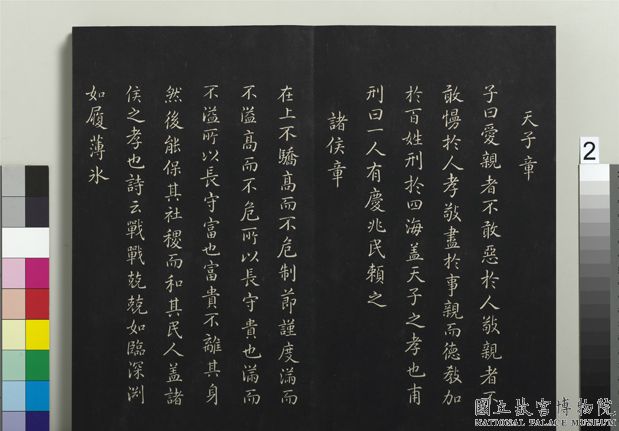 天子章
子曰愛親者不敢惡於人敬親者不
敢慢於人孝敬盡於事親而德教加
於百姓刑於四海盖天子之孝也甫
刑曰一人有慶兆民賴之
諸侯章
在上不驕高而不危制節謹度滿而
不溢高而不危所以長守貴也滿而
不溢所以長守富也富貴不離其身
然後能保其社稷而和其民人盖諸
侯之孝也詩云戰戰兢兢如臨深渕
如履薄氷
2
國立故宮博物院
NATIONAL PALACE MUSEUM